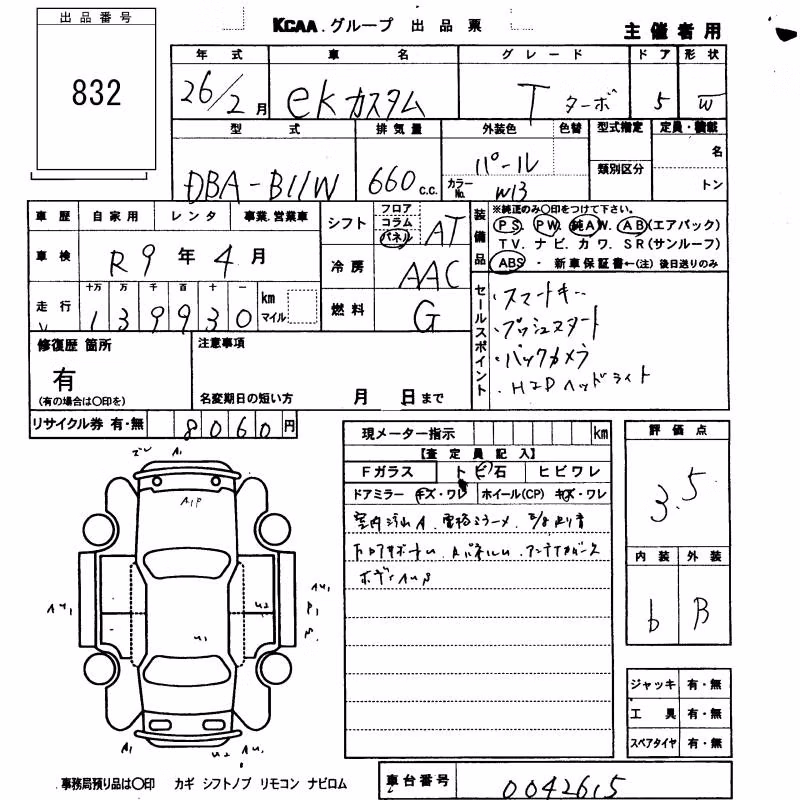 出品番号
832
KCAA グループ 出品票
主催者用
年式 車名 グレード ドア 形状
26/2月 eKカスタム T ターボ 5 W
型式 排気量 外装色 色替 型式指定 定員・積載
DBA-B11W 660 c.c. パール 名
類別区分
カラーNo. W13 トン
車歴 自家用 レンタ 事業.営業車
車検 R9年4月
走行 十万 万 千 百 十 一 km マイル
139930
シフト フロア コラム パネル AT
冷房 AAC
燃料 G
装備品
※純正のみ○印をつけて下さい。
PS. PW. 純AW. AB(エアバッグ)
TV.ナビ.カワ.SR(サンルーフ)
ABS ・ 新車保証書←(注) 後日送りのみ
セールスポイント
・スマートキー
・プッシュスタート
・バックカメラ
・HIDヘッドライト
修復歴 箇所
有
(有の場合は○印を)
注意事項
名変期日の短い方 月 日まで
リサイクル券 有・無 8060円
現メーター指示 km
【査定員記入】
Fガラス トビ石 ヒビワレ
ドアミラー キズ・ワレ ホイール(CP) キズ・ワレ
室内汚れA
ボディAUP
評価点
3.5
内装 外装
b B
ジャッキ 有・無
工具 有・無
スペアタイヤ 有・無
A1
A1P
AU1 U2 AU1
P1
U1
A1 U2 AU1
事務局預り品は○印 カギ シフトノブ リモコン ナビロム
車台番号 0042615